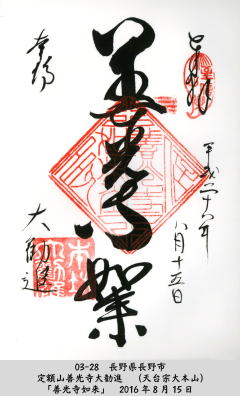 奉拝
平成二十八年
八月十五日
善光寺如来
大勧進
03-28 長野県長野市
定額山善光寺大勧進 (天台宗大本山)
「善光寺如来」 2016年8月15日